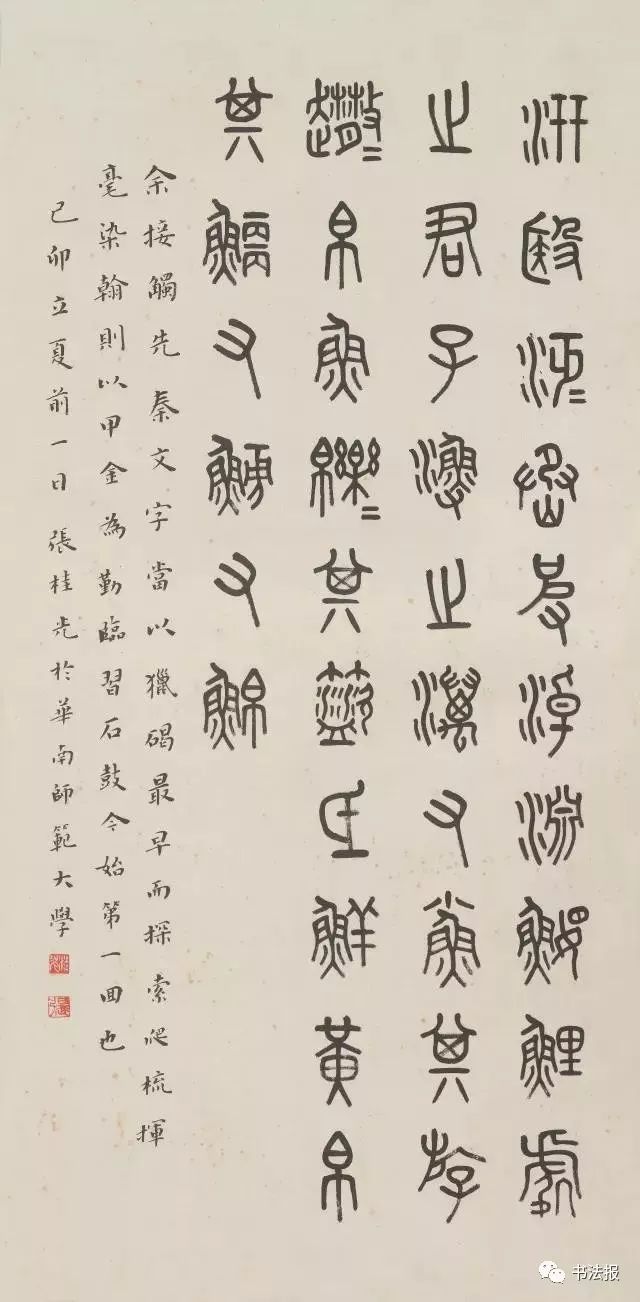 汧殹沔=丞皮淖淵鰋鯉處
之君子漁之澫又小魚其斿
𧽙=帛魚皪=其𥂝氐鮮黃帛
其鯿又鰟又鮊
余接觸先秦文字當以獵碣最早而探索爬梳揮
毫染翰則以甲金為勤臨習石鼓今始第一回也
己卯立夏前一日張桂光於華南師範大學
书法报